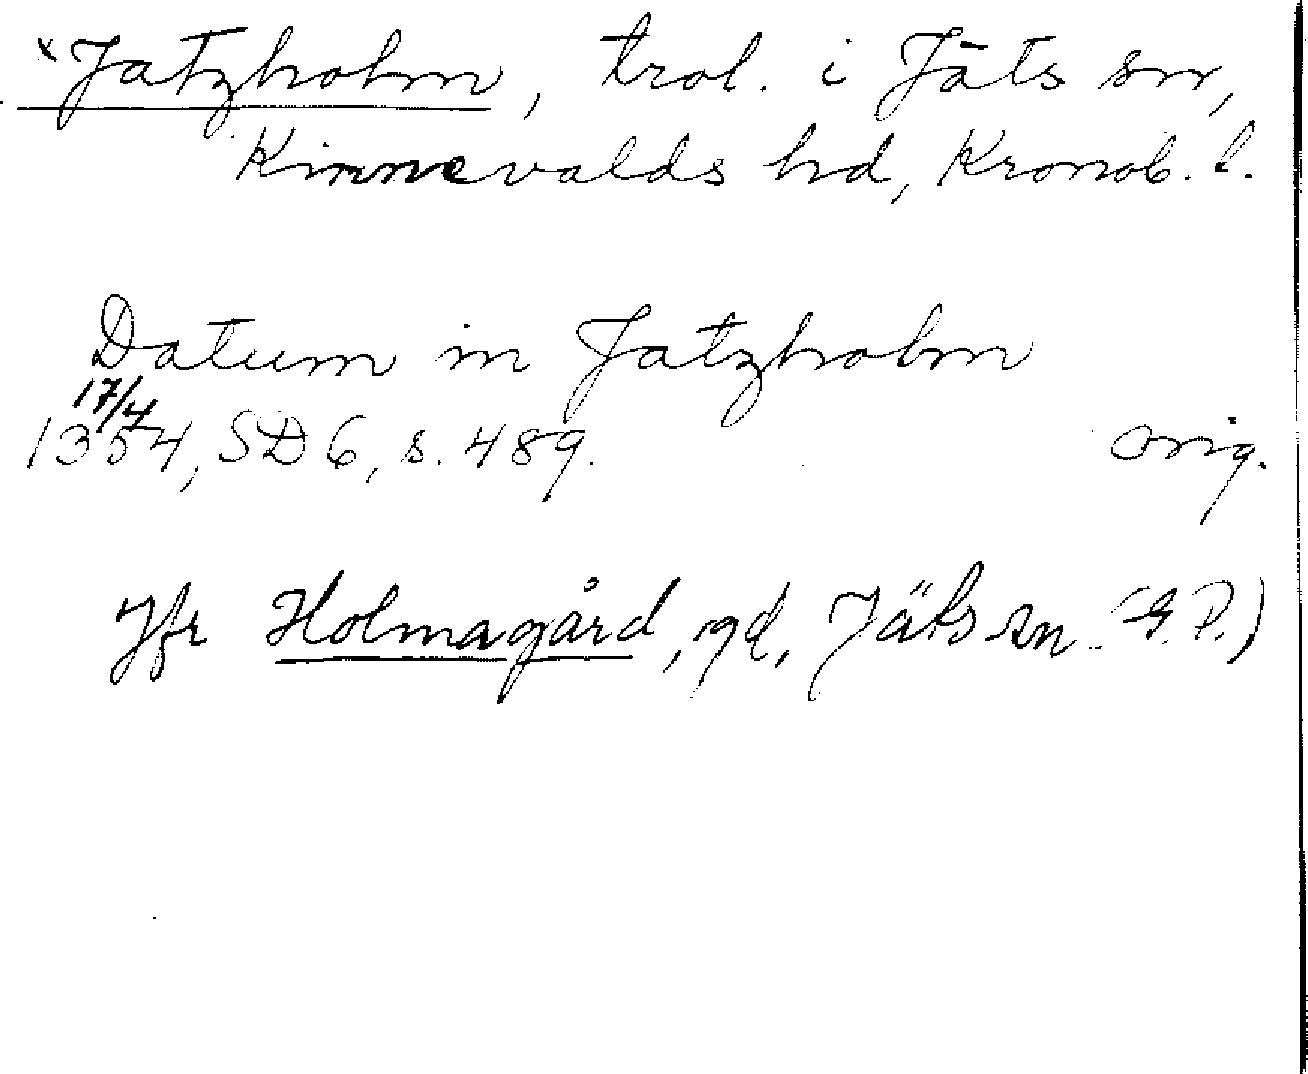 ˣJatzholm, trol. i Jäts sn,
Kinnevalds hd, Kronob. l.
Datum in Jatzholm
17/4
1354, SD 6, s. 489. orig.
Jfr Holmagård, gd, Jäts sn. (G.P.)